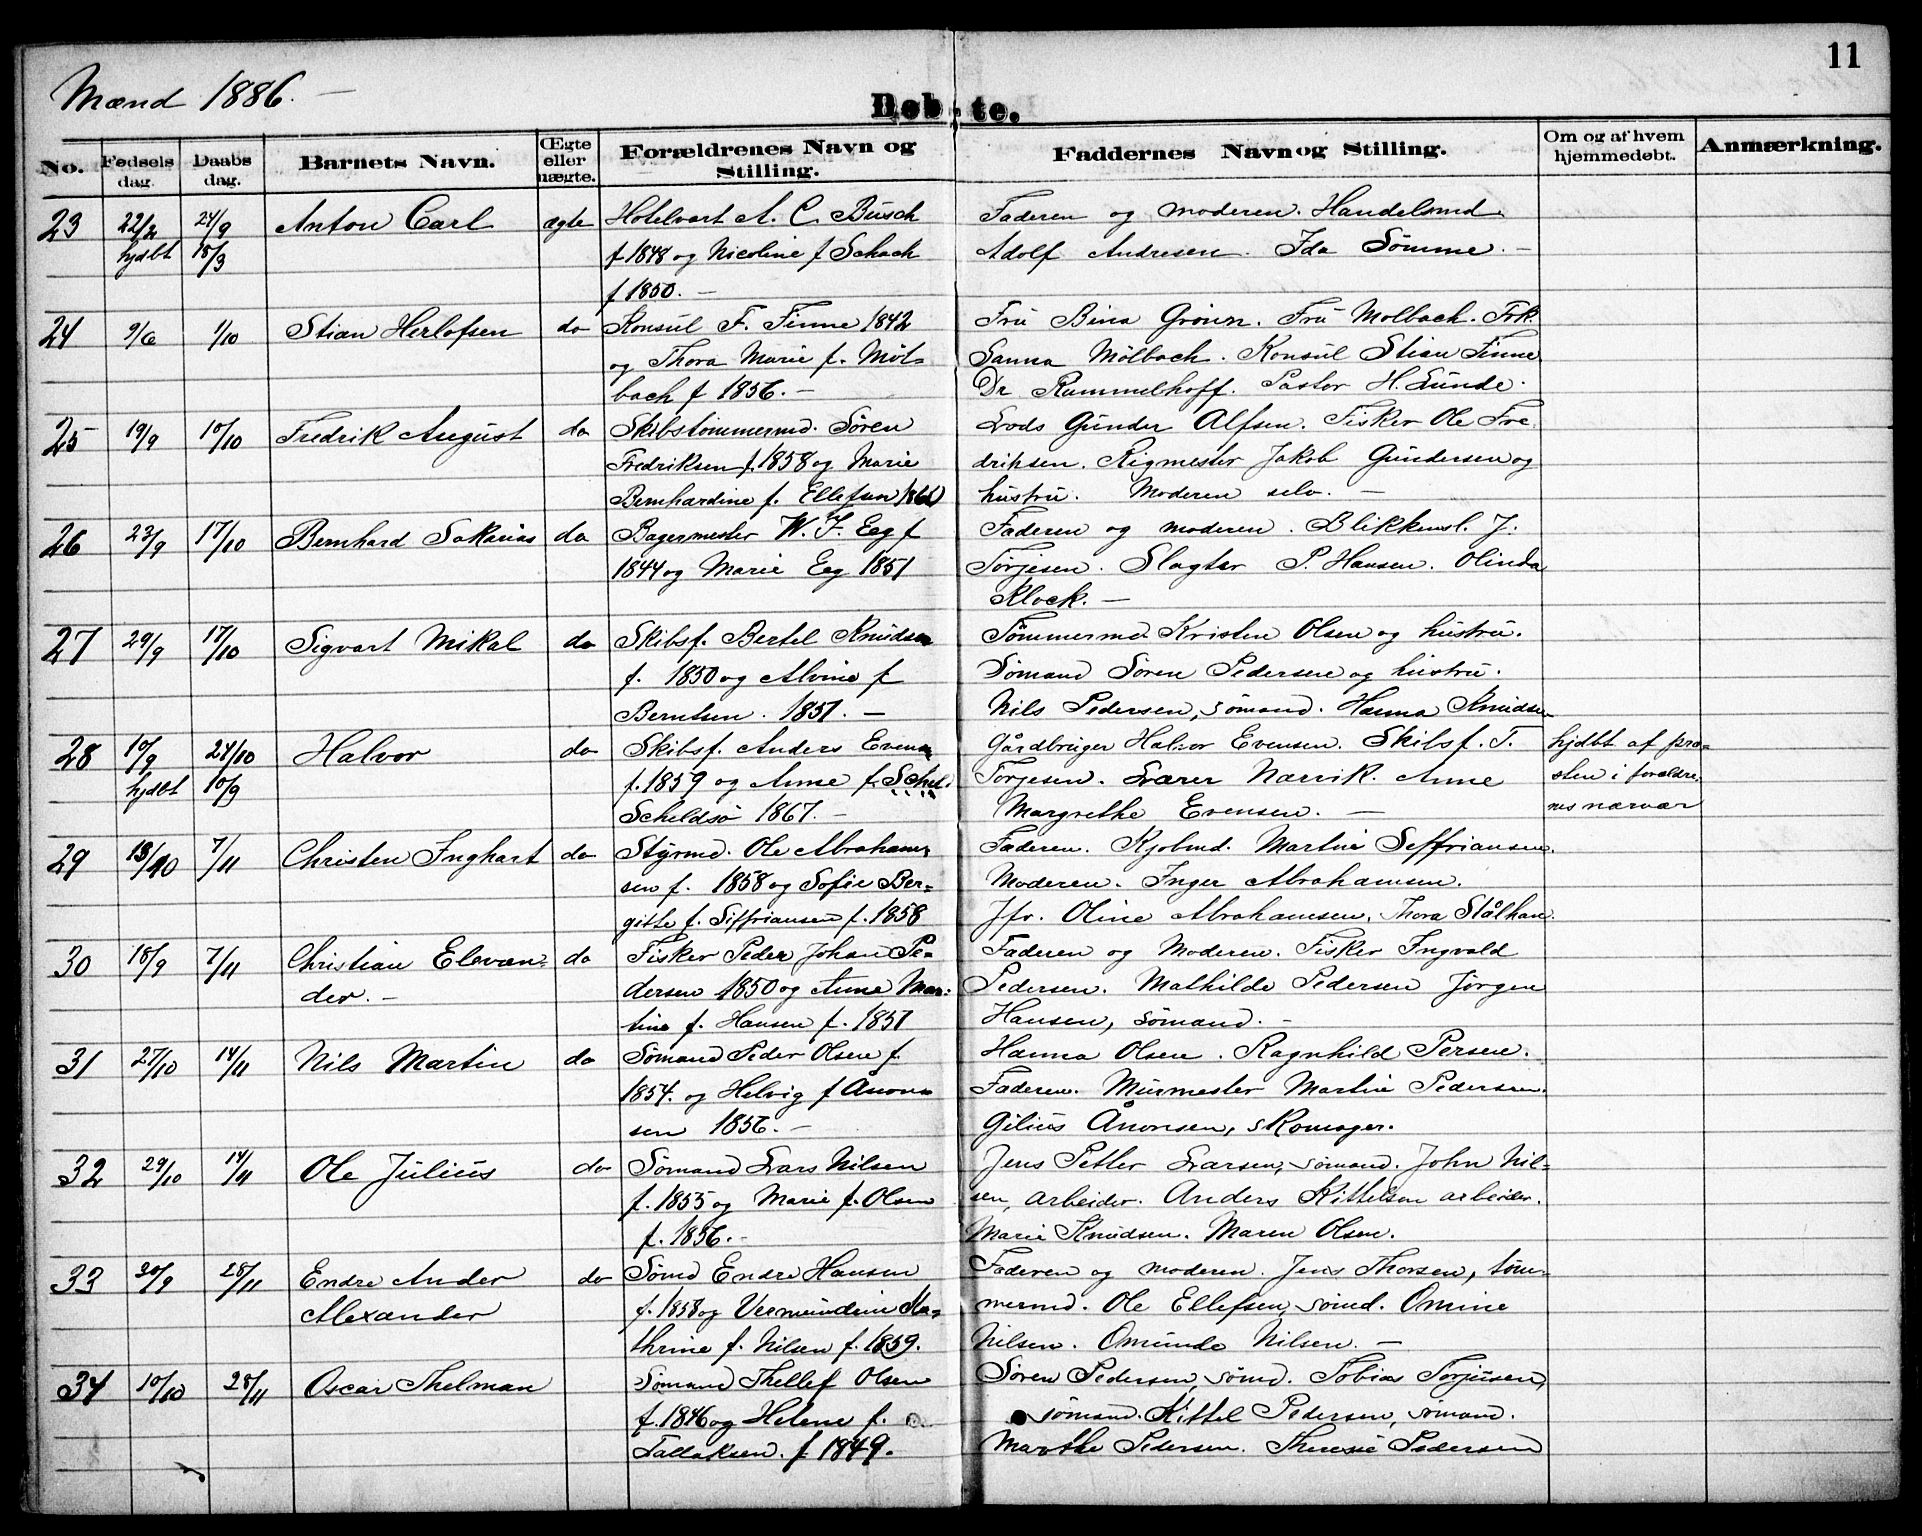 11
Mænd 1886. —
Døb-te.
No. Fødselsdag. Daabsdag. Barnets Navn. Ægte eller uægte. Forældrenes Navn og Stilling. Faddernes Navn og Stilling. Om og af hvem hjemmedøbt. Anmærkning.
23 22/2 24/9 Anton Carl ægte Hotelvært A. C. Busch Faderen og moderen. Handelsmd.
hjdbt 18/3 f 1848 og Nicoline f Schach Adolf Andresen. Ida Sömme. —
f 1850. —
24 9/6 1/10 Stian Herlofsen do Konsul F. Finne 1842 Fru Bina Groun. Fru Molbach. Frk.
og Thora Marie f. Möl- Sanna Mölbach. Konsul Stian Finne
bach f 1856. — Dr Rummelhoff. Pastor H. Lunde.
25 19/9 10/10 Fredrik August do Skibstömmermd. Sören Lods Gunder Alfsen. Fisker Ole Fre
Fredriksen f. 1858 og Marie driksen. Rigmester Jakob Gundersen og
Bernhardine f. Ellefsen hustru. Moderen selv. —
26 23/9 17/10 Bernhard Sakarias do Bagermester W. F. Eeg f Faderen og moderen. Blikkensl. J.
1844 og Marie Eeg 1851 Torjesen. Slagter P. Hansen. Olinda
Klock. —
27 29/9 17/10 Sigvart Mikal do Skibsf. Bertel Knudsen Tömmermd. Kristen Olsen og hustru.
f. 1850 og Alvine f Sömand Sören Pedersen og hustru.
Berntsen. 1851. — Nils Pedersen, sömand. Hanna Knudsen
28 10/9 24/10 Halvor do Skibsf. Anders Evensen Gårdbruger Halvor Evensen. Skibsf. T. hjdbt af præ-
hjdbt 10/9 f. 1859 og Anne f. Schel. Torjesen. Lærer Narvik. Anne sten i forældre,
Scheldsö 1867. — Margrethe Evensen. — nes nærvær
29 13/10 7/11 Christen Inghart do Styrmd. Ole Abraham- Faderen. Kjöbmd. Martin Seffriansen.
sen f. 1858 og Sofie Ber- Moderen. Inger Abrahamsen.
gitte f. Siffriansen f. 1858 Jfr. Oline Abrahamsen. Thora Stålhan
30 18/9 7/11 Christian Elevan- do Fisker Peder Johan Pe- Faderen og Moderen. Fisker Ingvald
der. — dersen 1850 og Anne Mar- Pedersen. Mathilde Pedersen Jörgen
tine f. Hansen f. 1851 Hansen, sömand. —
31 27/10 14/11 Nils Martin do Sömand Peder Olsen f. Hanna Olsen. Ragnhild Persen.
1854. og Helvig f Ånon- Faderen. Murmester Martin Pedersen.
sen 1856. — Gilius Ånonsen, skomager.
32 29/10 14/11 Ole Julius do Sömand Lars Nilsen Jens Petter Larsen, sömand. John Nil-
f. 1855 og Marie f. Olsen sen, arbeider. Anders Kittelsen arbeider.
f. 1856. — Marie Knudsen. Maren Olsen.
33 20/9 28/11 Endre Ander do Sömd Endre Hansen Faderen og moderen. Jens Thorsen, töm-
Alexander f. 1858 og Vermundine Ka- mermd. Ole Ellefsen, sömd. Omine
thrine f. Nilsen f. 1859. Nilsen. Omunde Nilsen. —
34 10/10 28/11 Oscar Thelman Sömand Thellef Olsen Sören Pedersen, sömd. Tobias Torjusen,
f. 1846 og Helene f. sömand. Kittel Pedersen, sömand.
Tallaksen. f 1849. Marthe Pedersen. Theresie Pedersen